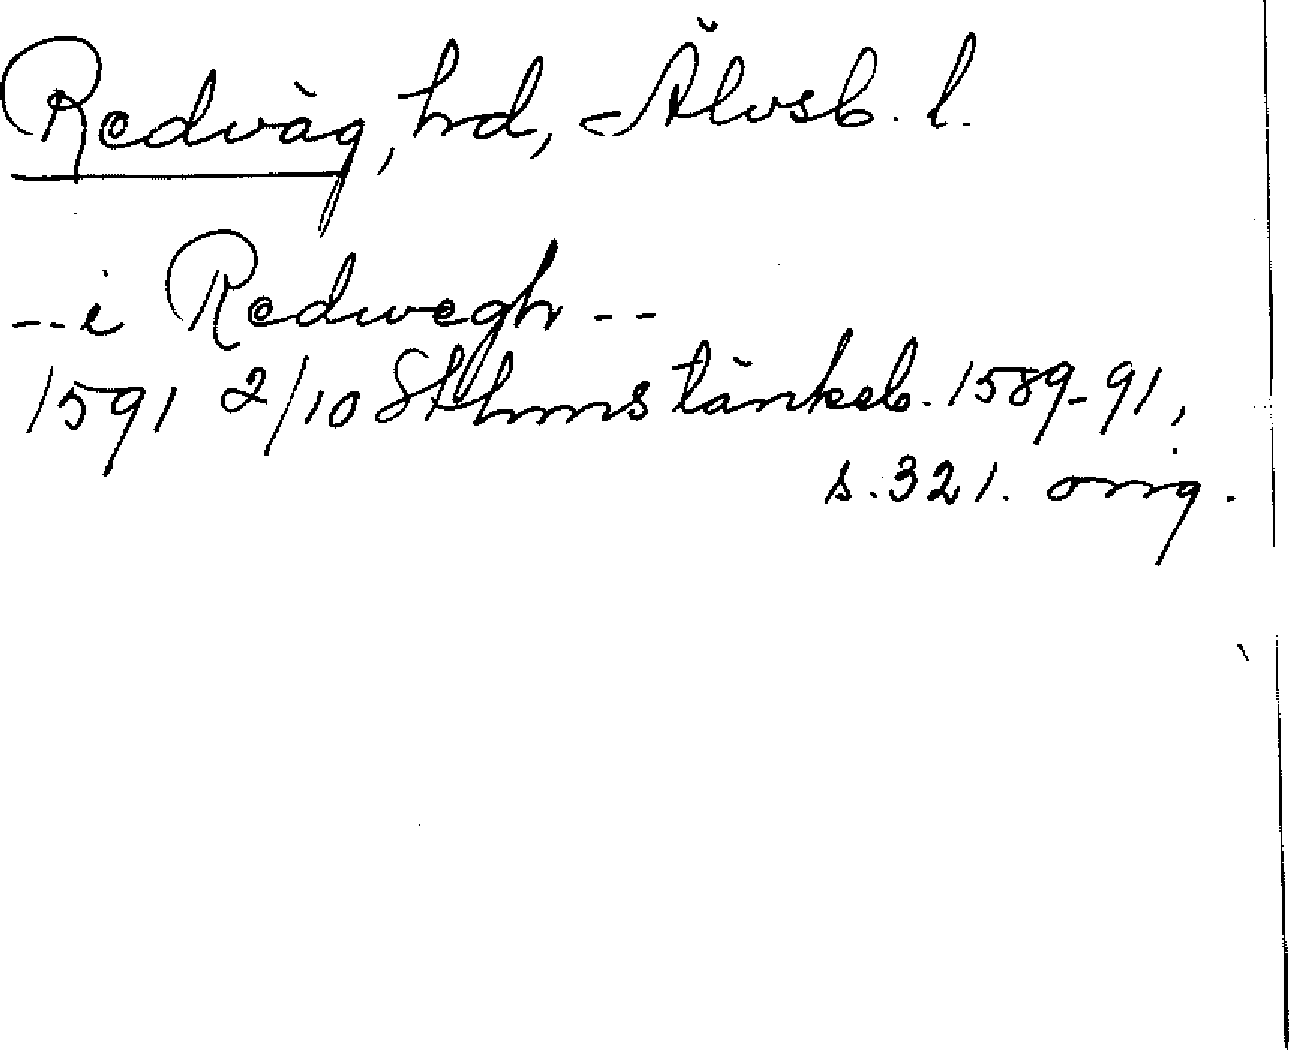 Redväg, hd, Älvsb. l.
--i Redwegh--
1591 2/10 Sthms tänkeb. 1589-91,
s. 321. orig.